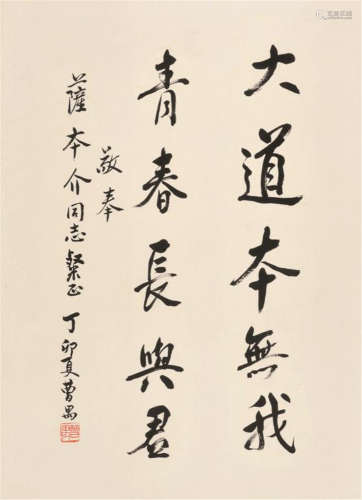 大道本無我
青春長與君
敬奉
薩本介同志粲正
丁卯夏曹禺